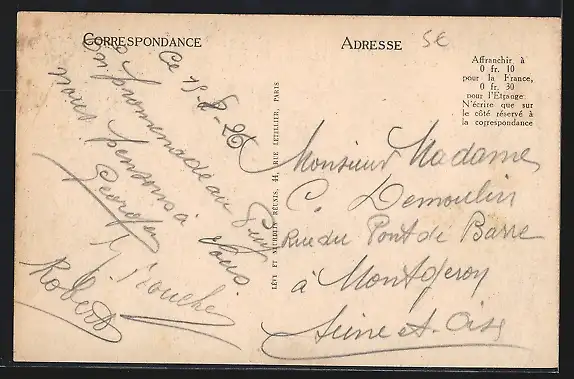 CORRESPONDANCE
Ce 15-8-26
En promenade au Puy
nous pensons à vous
Georges
Robert
LÉVY ET NEURDEIN RÉUNIS, 44, RUE LETELLIER, PARIS
ADRESSE
Affranchir à
0 fr. 10
pour la France,
0 fr. 30
pour l'Étranger
N'écrire que sur
le côté réservé à
la correspondance
Monsieur Madame
C. Demoulin
Rue du Pont de Barre
à Montgeron
Seine et Oise